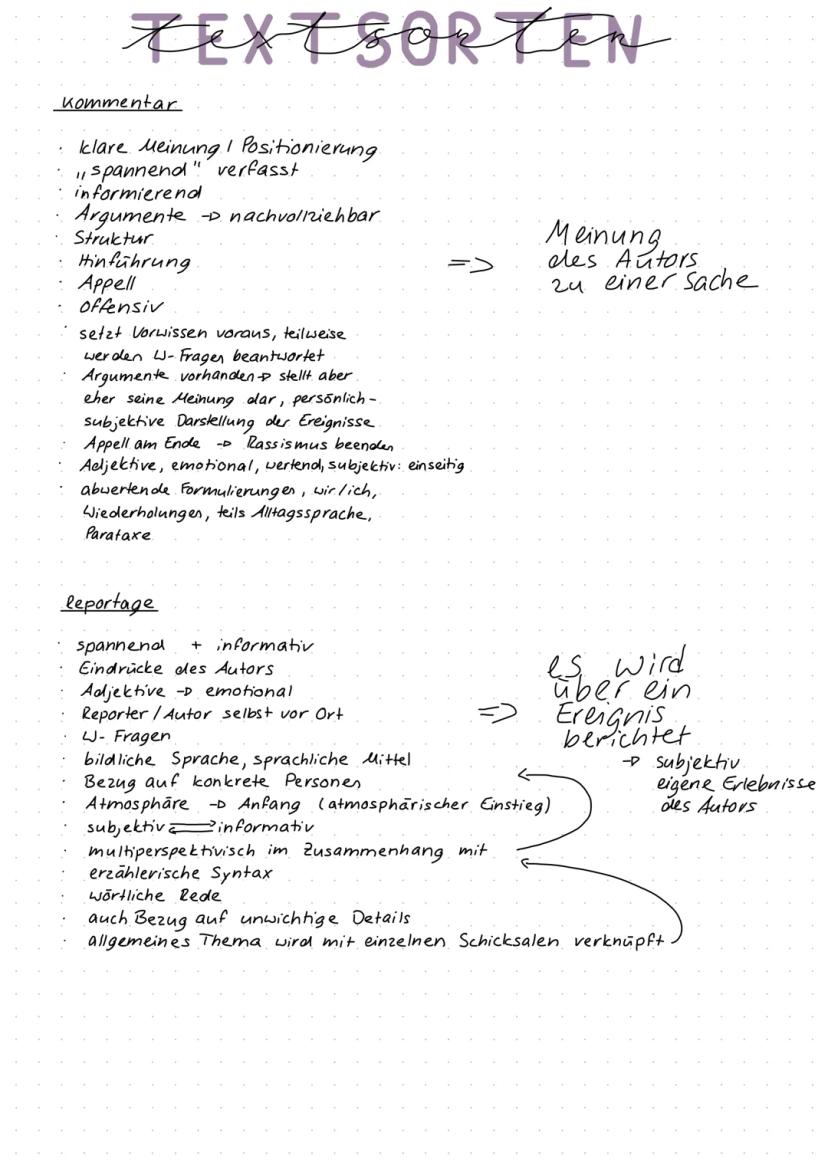 TEXTSORTEN
textsorten
Kommentar
· klare Meinung / Positionierung
· „spannend" verfasst
· informierend
· Argumente → nachvollziehbar
· Struktur
· Hinführung
· Appell
· offensiv
· setzt Vorwissen voraus, teilweise
werden W-Fragen beantwortet
· Argumente vorhanden → stellt aber
eher seine Meinung dar, persönlich-
subjektive Darstellung der Ereignisse
· Appell am Ende → Rassismus beenden
· Adjektive, emotional, wertend, subjektiv: einseitig
· abwertende Formulierungen, wir/ich,
Wiederholungen, teils Alltagssprache,
Parataxe
=> Meinung
des Autors
zu einer Sache
Reportage
· spannend + informativ
· Eindrücke des Autors
· Adjektive → emotional
· Reporter / Autor selbst vor Ort
· W-Fragen
· bildliche Sprache, sprachliche Mittel
· Bezug auf konkrete Personen
· Atmosphäre → Anfang (atmosphärischer Einstieg)
· subjektiv ⇌ informativ
· multiperspektivisch im Zusammenhang mit
· erzählerische Syntax
· wörtliche Rede
· auch Bezug auf unwichtige Details
· allgemeines Thema wird mit einzelnen Schicksalen verknüpft
=> es wird
über ein
Ereignis
berichtet
→ subjektiv
eigene Erlebnisse
des Autors